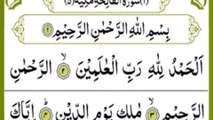 (١) سُوْرَةُ الْفَاتِحَةِ مَكِّيَّةٌ (٥)
بِسْمِ اللهِ الرَّحْمٰنِ الرَّحِيْمِ ۝١
اَلْحَمْدُ لِلّٰهِ رَبِّ الْعٰلَمِيْنَ ۝٢ الرَّحْمٰنِ
الرَّحِيْمِ ۝٣ مٰلِكِ يَوْمِ الدِّيْنِ ۝٤ اِيَّاكَ